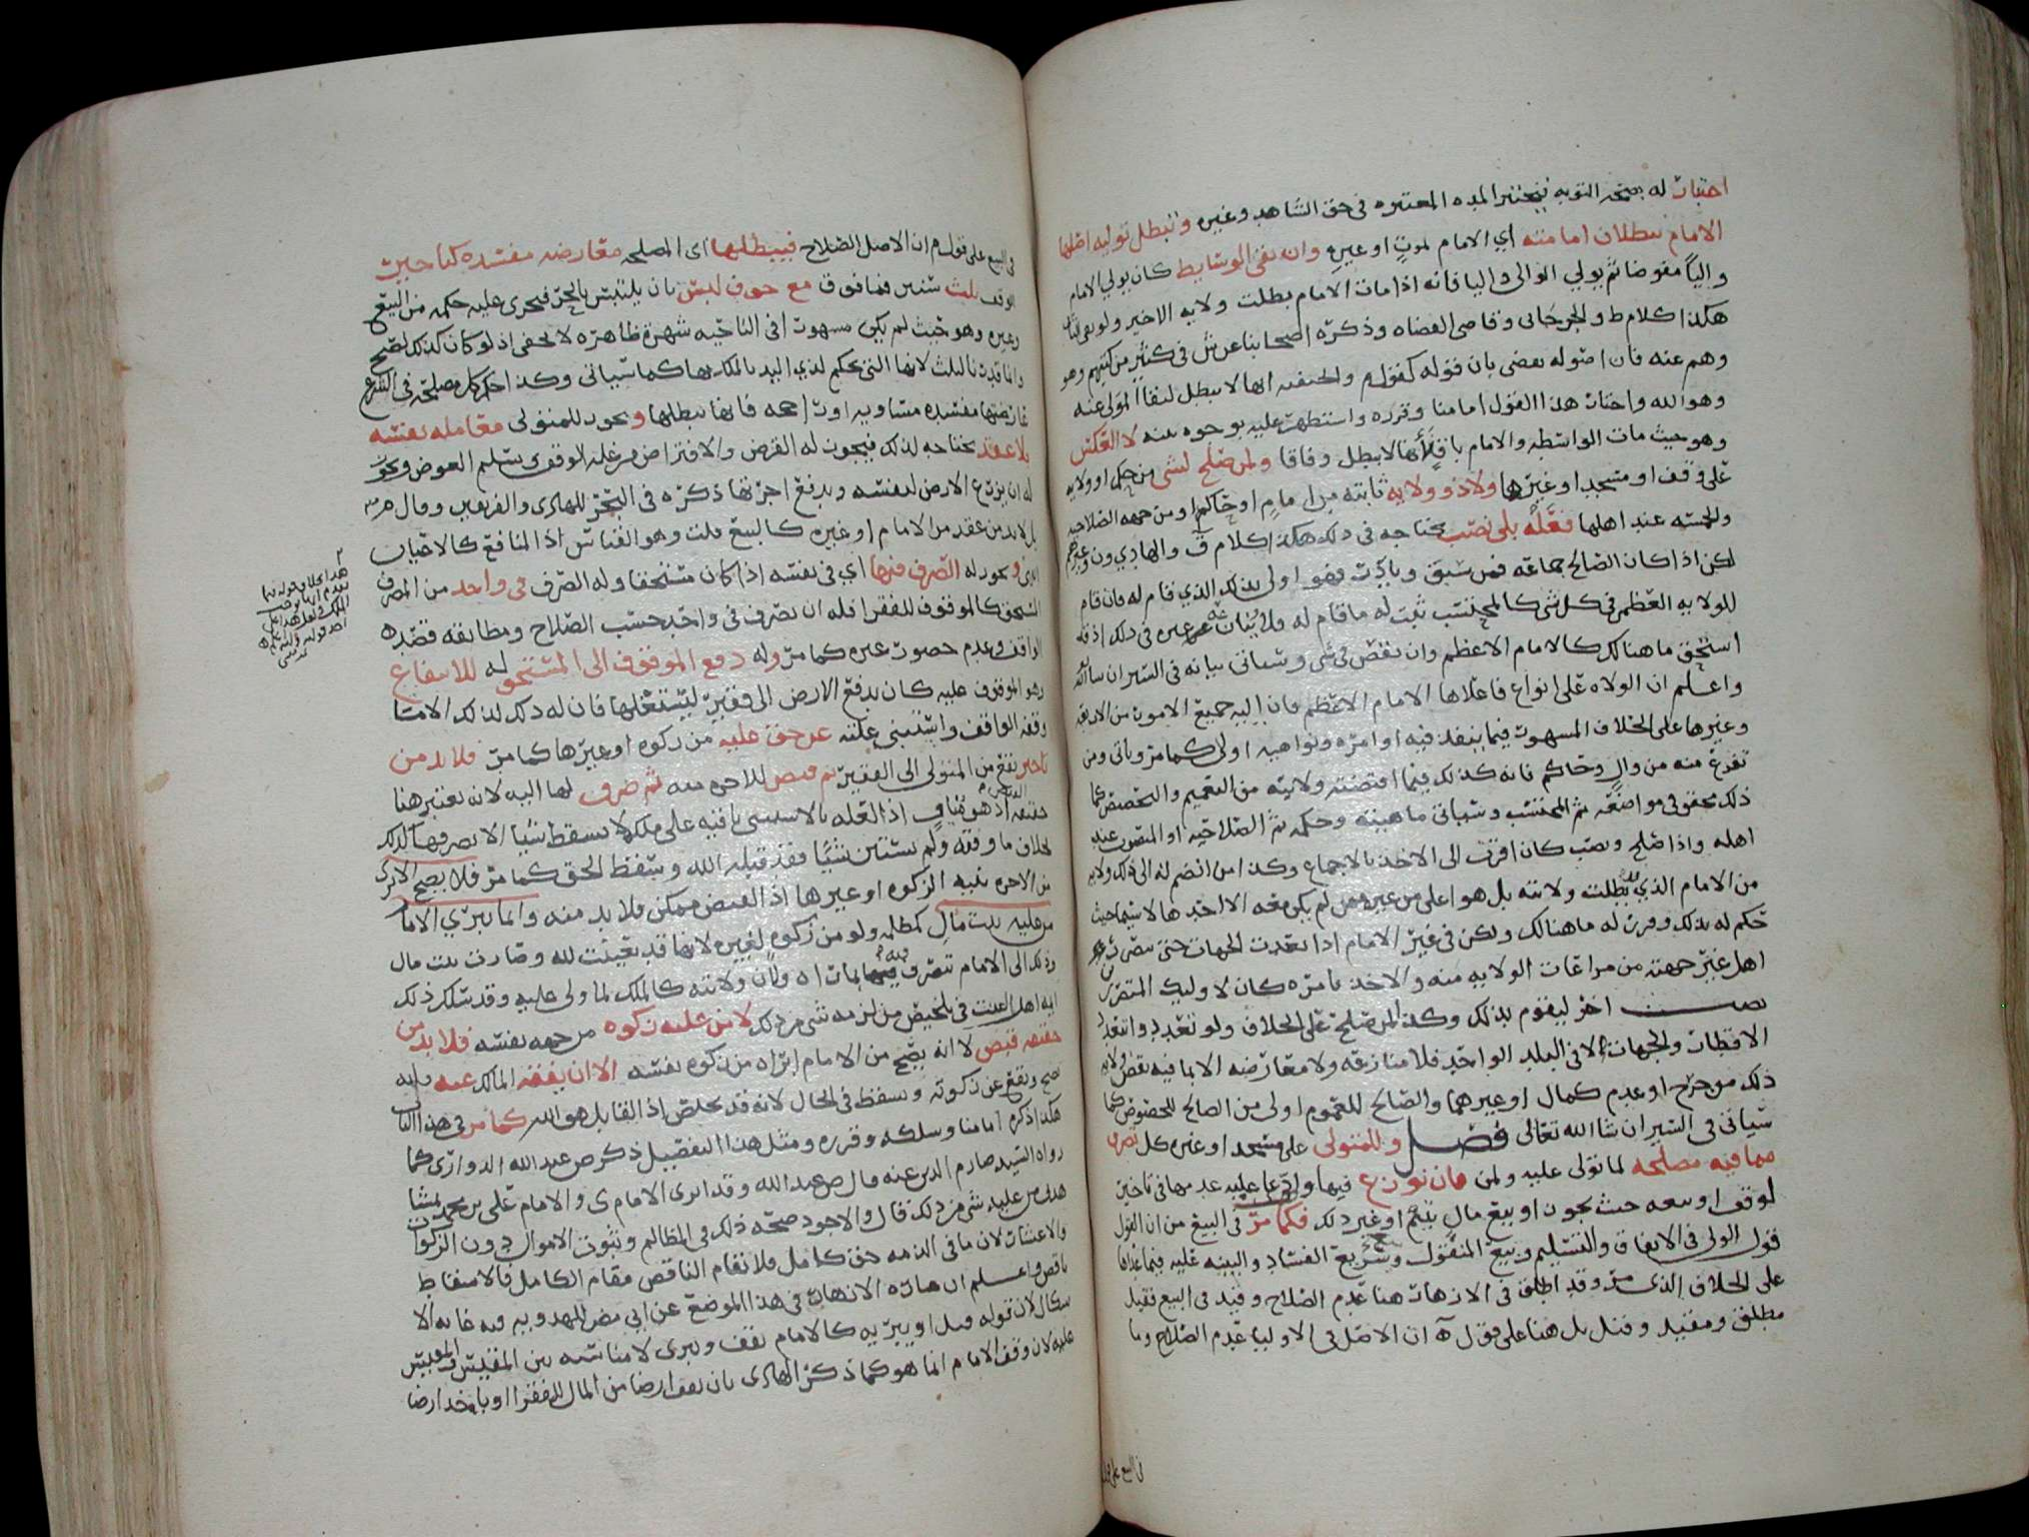 اختبار له بصحه التوبه فيختبر المده المعتبره في حق الشاهد وغيره وتبطل توليه اصلها
الامام ببطلان امامته اي الامام لموت او غيره وان بقي الوسايط كان يولي الامام
واليا مفوضا ثم يولي الوالي واليا فانه اذا مات الامام بطلت ولايه الاخير ولو بقي
هكذا كلام ط والجرجاني وقاضي القضاه وذكره اصحابنا عن ش في كثير من كتبهم وهو
وهم عنه فان اصوله تقضي بان قوله كقول م والحنفيه انها لا تبطل لبقا المولى عنه
وهو لله واختار هذا القول امامنا وقرره واستظهر عليه بوجوه بينه لا العكس
وهو حيث مات الواسطه والامام باق فانها لا تبطل وفاقا ولمن صلح لشي من حكم او ولايه
على وقف او مسجد او غيرها ولا ذو ولايه ثابته من امام او حاكم او من جهه الصلاحيه
والحسبه عند اهلها فعله بلا نصب يحتاجه في ذلك هكذا كلام ق والهادي ون وغيرهم
لكن اذا كان الصالح جماعه فمن سبق وبادر فهو اولى بذلك الذي قام له فان قام
للولايه العظمى في كل شي كالمحتسب ثبت له ما قام له فلا ينازعه غيره في ذلك اذ قد
استحق ما هنالك كالامام الاعظم وان نقص في شي وسياتي بيانه في السير ان شا الله
واعلم ان الولاه على انواع فاعلاها الامام الاعظم فان اليه جميع الامور من الاربعه
وغيرها على الخلاف المشهور فيما ينفذ فيه اوامره ونواهيه اولى كما مر وياتي ومن
تفرع منه من وال وحاكم فانه كذلك فيما اقتضته ولايته من التعميم والتخصيص كما
ذلك محقق في مواضعه ثم المحتسب وسياتي ماهيته وحكمه ثم الصلاحيه او المنصوب عند
اهله واذا صلح ونصب كان اقرب الى الاخذ بالاجماع وكذا من انضم له الى ذلك ولايه
من الامام الذي بطلت ولايته بل هو اعلى من غيره ممن لم يكن معه الا احدها لا سيما حيث
حكم له بذلك وقرر له ما هنالك ولكن في غير الامام اذا تعددت الجهات حتى
اهل غير جهته من مراعات الولايه منه والاخذ بامره كان لاولئك
نصب اخر ليقوم بذلك وكذا لمن صلح على الخلاف ولو تعدد واتحد
الاقطار والجهات الا في البلد الواحد فلا منازعه ولا معارضه الا بما فيه نقض ولايه
ذلك من جرح او عدم كمال او غيرهما والصالح للعموم اولى من الصالح للخصوص كما
سياتي في السير ان شا الله تعالى فصل وللمتولي على مسجد او غيره كل تصرف
مما فيه مصلحه لما تولى عليه ولمن فان نوزع فيها وادعا عليه عدمها في تاجير
لوقف او بيعه حيث يجوز او بيع مال يتيم او غير ذلك فكما مر في البيع من ان القول
قول الولي في الانفاق والتسليم وبيع المنقول وسريع الفساد والبينه عليه فيما عداها
على الخلاف الذي مر وقد اطلق في الازهار هنا عدم الصلاح وقيد في البيع فقيل
مطلق ومقيد وقيل بل هنا على قول ه ان الاصل في الاوليا عدم الصلاح وما
في البيع على قول
في البيع على قول م ان الاصل الصلاح فيبطلها اي المصلحه معارضه مفسده كتاجير
الوقف ثلث سنين فما فوق مع خوف لبس بان يلتبس بالحر فيجري عليه حكمه من البيع
وغيره وهو حيث لم يكن مشهورا في الناحيه شهره ظاهره لا تخفى اذ لو كان كذلك لصح
وانما قدرنا بالثلث لانها التي يحكم لذي اليد بالملك بها كما سياتي وكذا حكم كل مصلحه في الشرع
عارضتها مفسده مساويه او راجحه فانها تبطلها ويجوز للمتولي معامله نفسه
بلا عقد يحتاجه لذلك فيجوز له القرض والاقتراض من غله الوقف وتسليم العوض ويجوز
له ان يزرع الارض لنفسه ويدفع اجرتها ذكره في البحر للهادي والفريقين وقال م
بل لا بد من عقد من الامام او غيره كالبيع قلت وهو القياس اذ المنافع كالاعيان
ويجوز له الصرف فيها اي في نفسه اذا كان مستحقا وله الصرف في واحد من المصرف
المستحق كالموقوف للفقرا فله ان يصرف في واحد حسب الصلاح ومطابقه قصد
الواقف وعدم حصور غيره كما مر وله دفع الموقوف الى المستحق له للانتفاع
وهو الموقوف عليه كان يدفع الارض الى فقير ليستغلها فان له ذلك لذلك الا ما
وقفه الواقف واستثنى غلته عن حق عليه من زكوه او غيرها كما مر فلا بد من
تاجير يقع من المتولي الى الفقير ثم قبض للاجره منه ثم صرف لها اليه لانه يعتبر هنا
حقيقه اذ هو قياس اذ الغله بالاستثنى باقيه على ملكه لا يسقط شيا الا بصرفها كذلك
بخلاف ما وقفه ولم يستثن شيا فقد قبله الله وسقط الحق كما مر فلا يصح الابرا
من الاجره بنيه الزكوه او غيرها اذ القبض ممكن فلا بد منه وانما يبري الامام
من عليه بيت مال كمظلمه ولو من زكوه لغيره لانها قد تعينت لله وصارت بيت مال
وذلك الى الامام تصرف فيه بما راه ولان ولايته كالملك لما ولي عليه وقد سلك ذلك
ايه اهل البيت في تلخيص من لزمه شي من ذلك لا من عليه زكوه من جهه نفسه فلا بد من
حقيقه قبض لا انه يصح من الامام ابراه من زكوه نفسه الا ان يقفه المالك عنه فانه
يصح ويقع عن زكوته ويسقط في الحال لانه قد تخلص اذ القابل هو الله كما مر في هذا الباب
هكذا ذكره امامنا وسلكه وقرره ومثل هذا التفصيل ذكر ض عبد الله الدواري كما
رواه السيد صارم الدين عنه قال ض عبد الله وقد ابرى الامام ي والامام علي بن محمد
من عليه شي من ذلك قال والاجود صحه ذلك في المظالم وبيوت الاموال دون الزكوات
والاعشار لان ما في الذمه حق كامل فلا يقام الناقص مقام الكامل فالاسقاط
ناقص واعلم ان عباره الازهار في هذا الموضع عن ابي مضر للمهدويه فيه غايه
الاشكال لان قوله قبل او يبريه كالامام يقف ويبري لا مناسبه بين المقيس والمقيس
عليه لان وقف الامام انما هو كما ذكر الهادي بان يقف ارضا من المال للفقرا او ياخذ ارضا